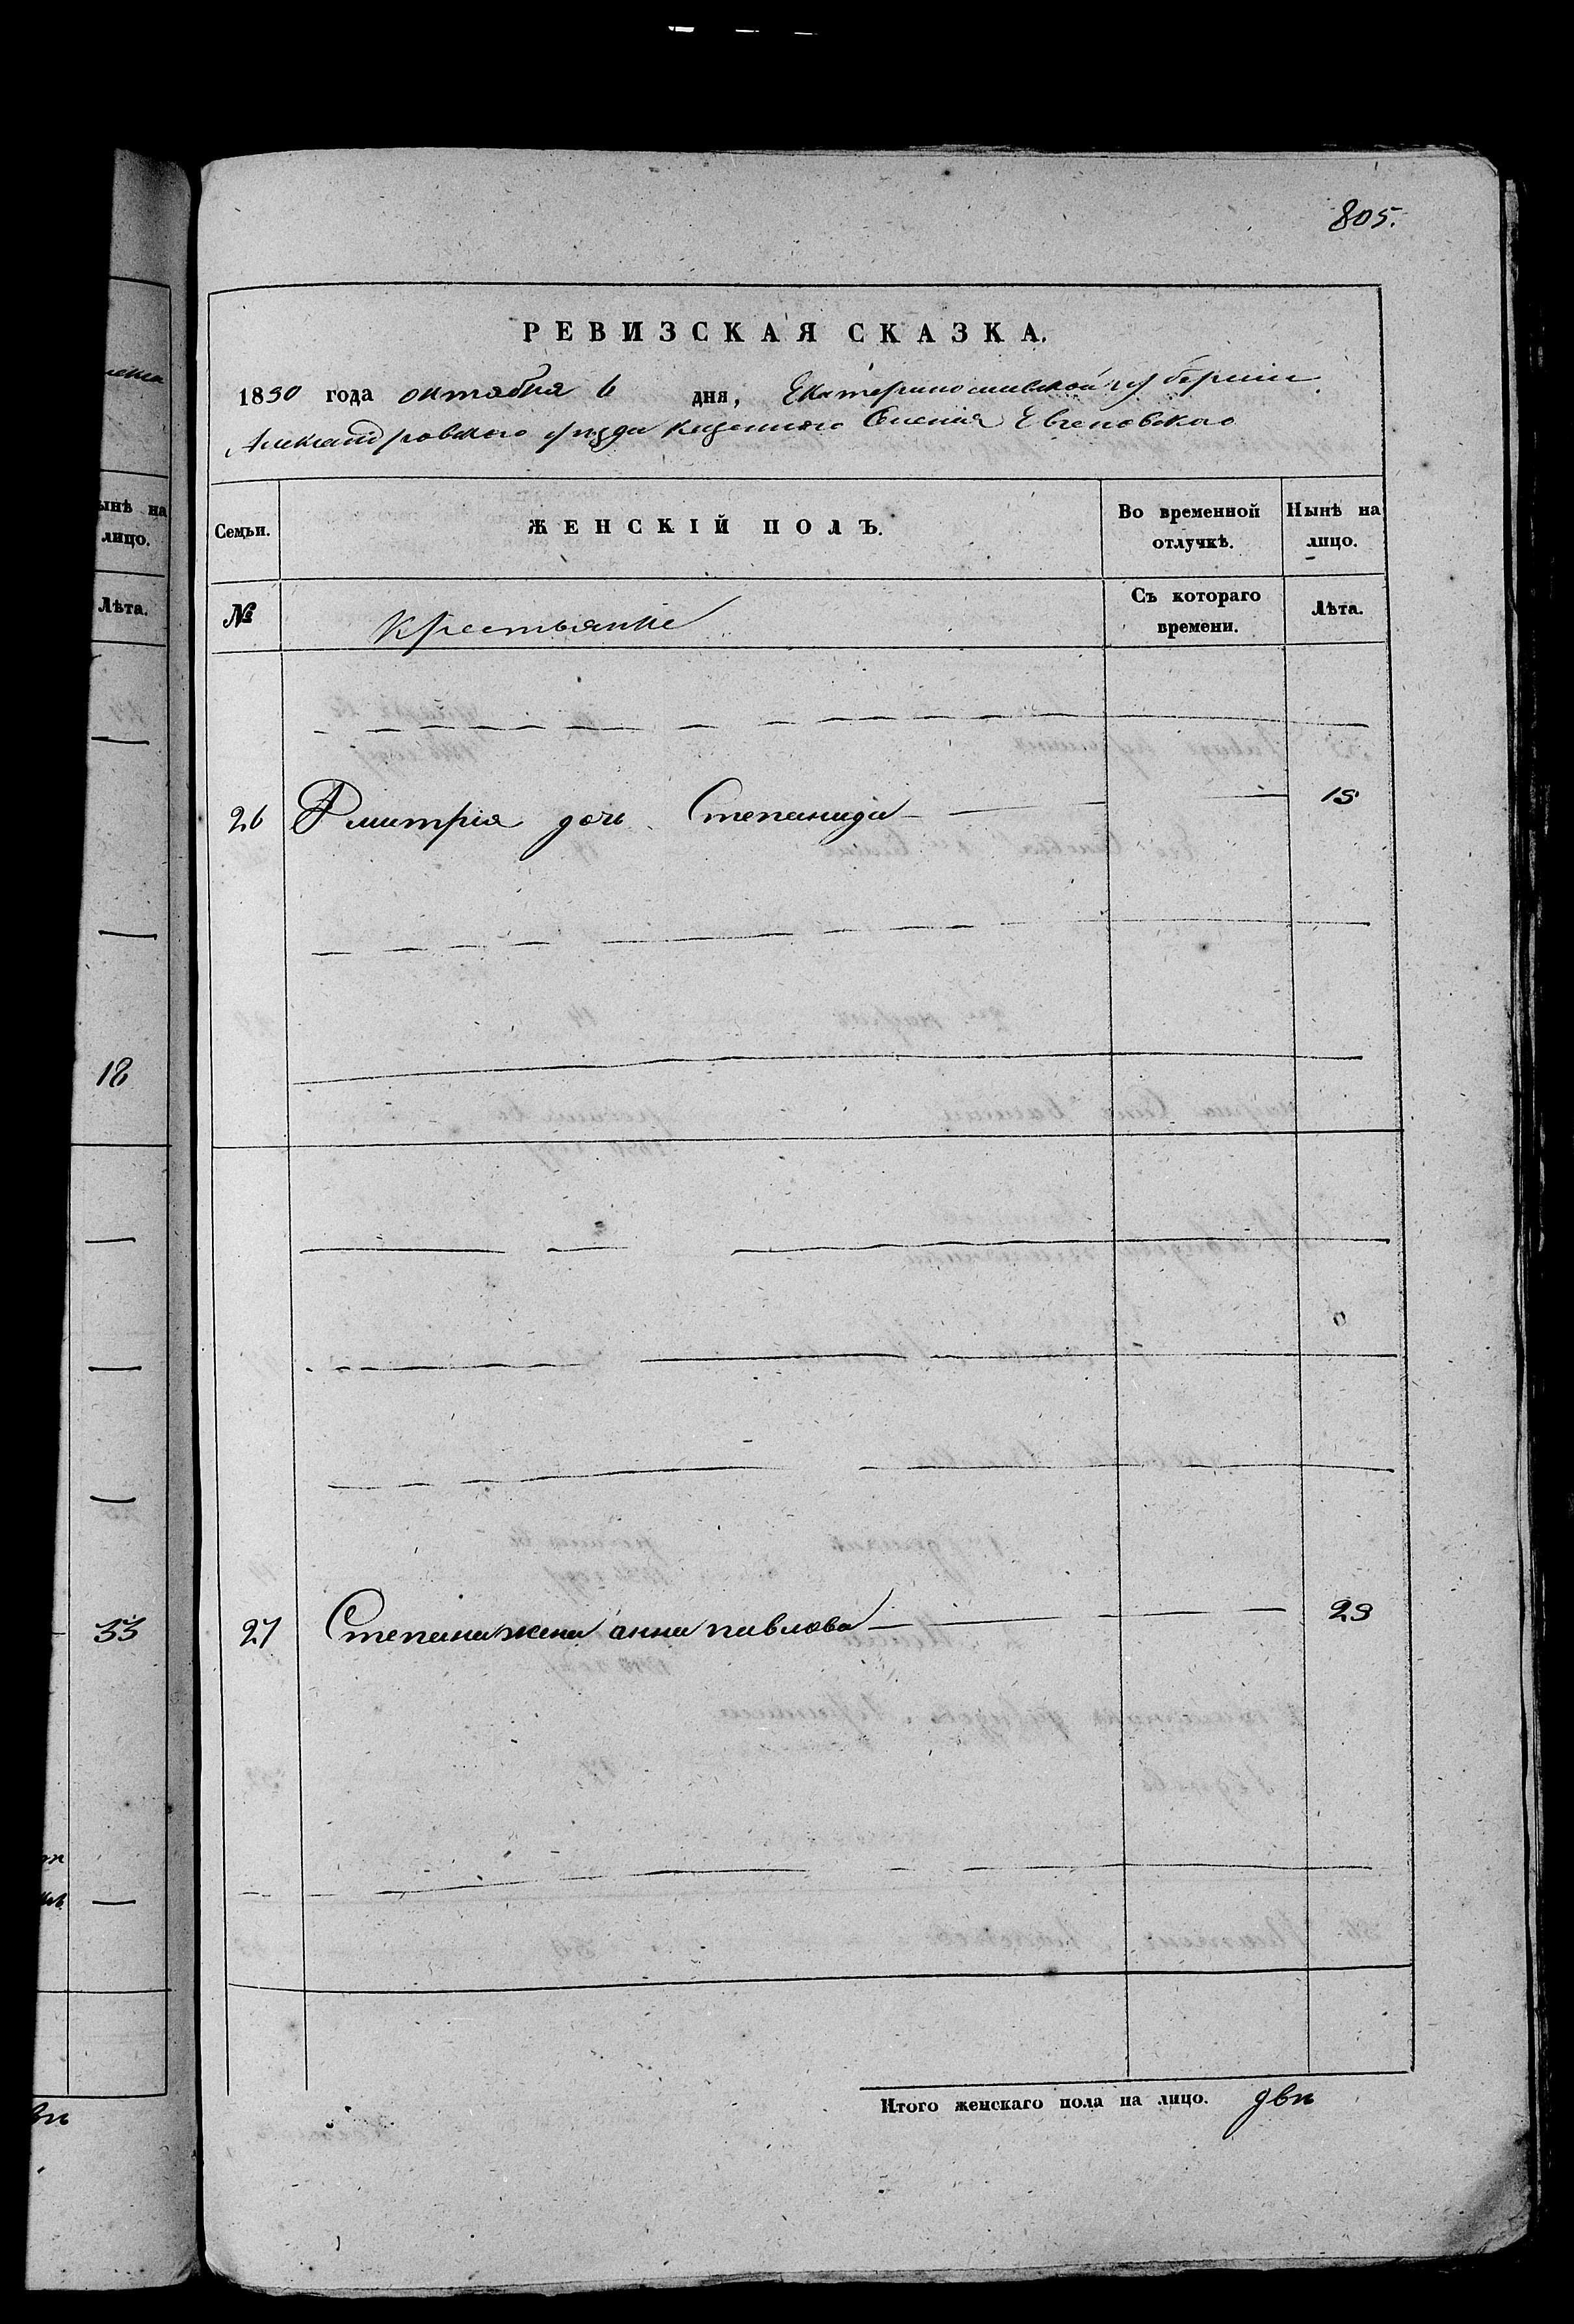 805.
РЕВИЗСКАЯ СКАЗКА.
1850 года октября 6 дня, Екатеринославской губернии
Александровского уезда казенного Селения Евгеновского
ынѣ на
лицо.
Семьи.
ЖЕНСКІЙ ПОЛЪ.
Во временной
отлучкѣ.
Нынѣ на
лицо.
Лѣта.
№
крестьянке
Съ котораго
времени.
Лѣта.
26 Дмитрія дочь Степанида 15
18
33
27 Степана жена анна павлова 29
Итого женскаго пола на лицо. двѣ